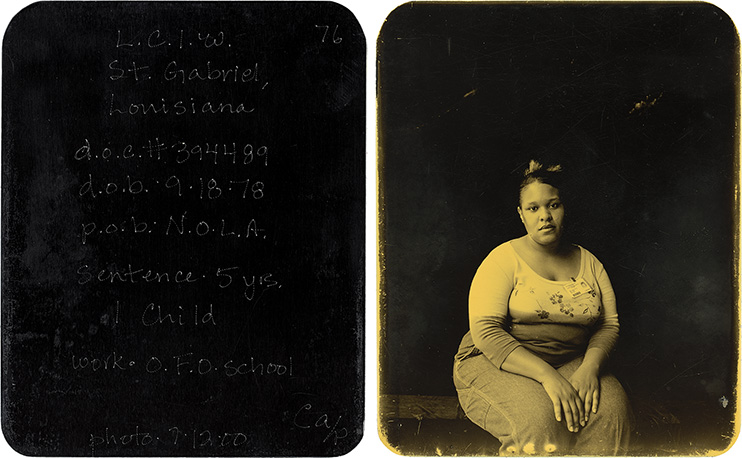 L.C.I.W. 76
St. Gabriel,
Louisiana
d.o.c.# 394489
d.o.b. 9.18.78
p.o.b. N.O.L.A.
Sentence. 5 yrs.
1 Child
work. O.F.O. school
photo. 9.12.00